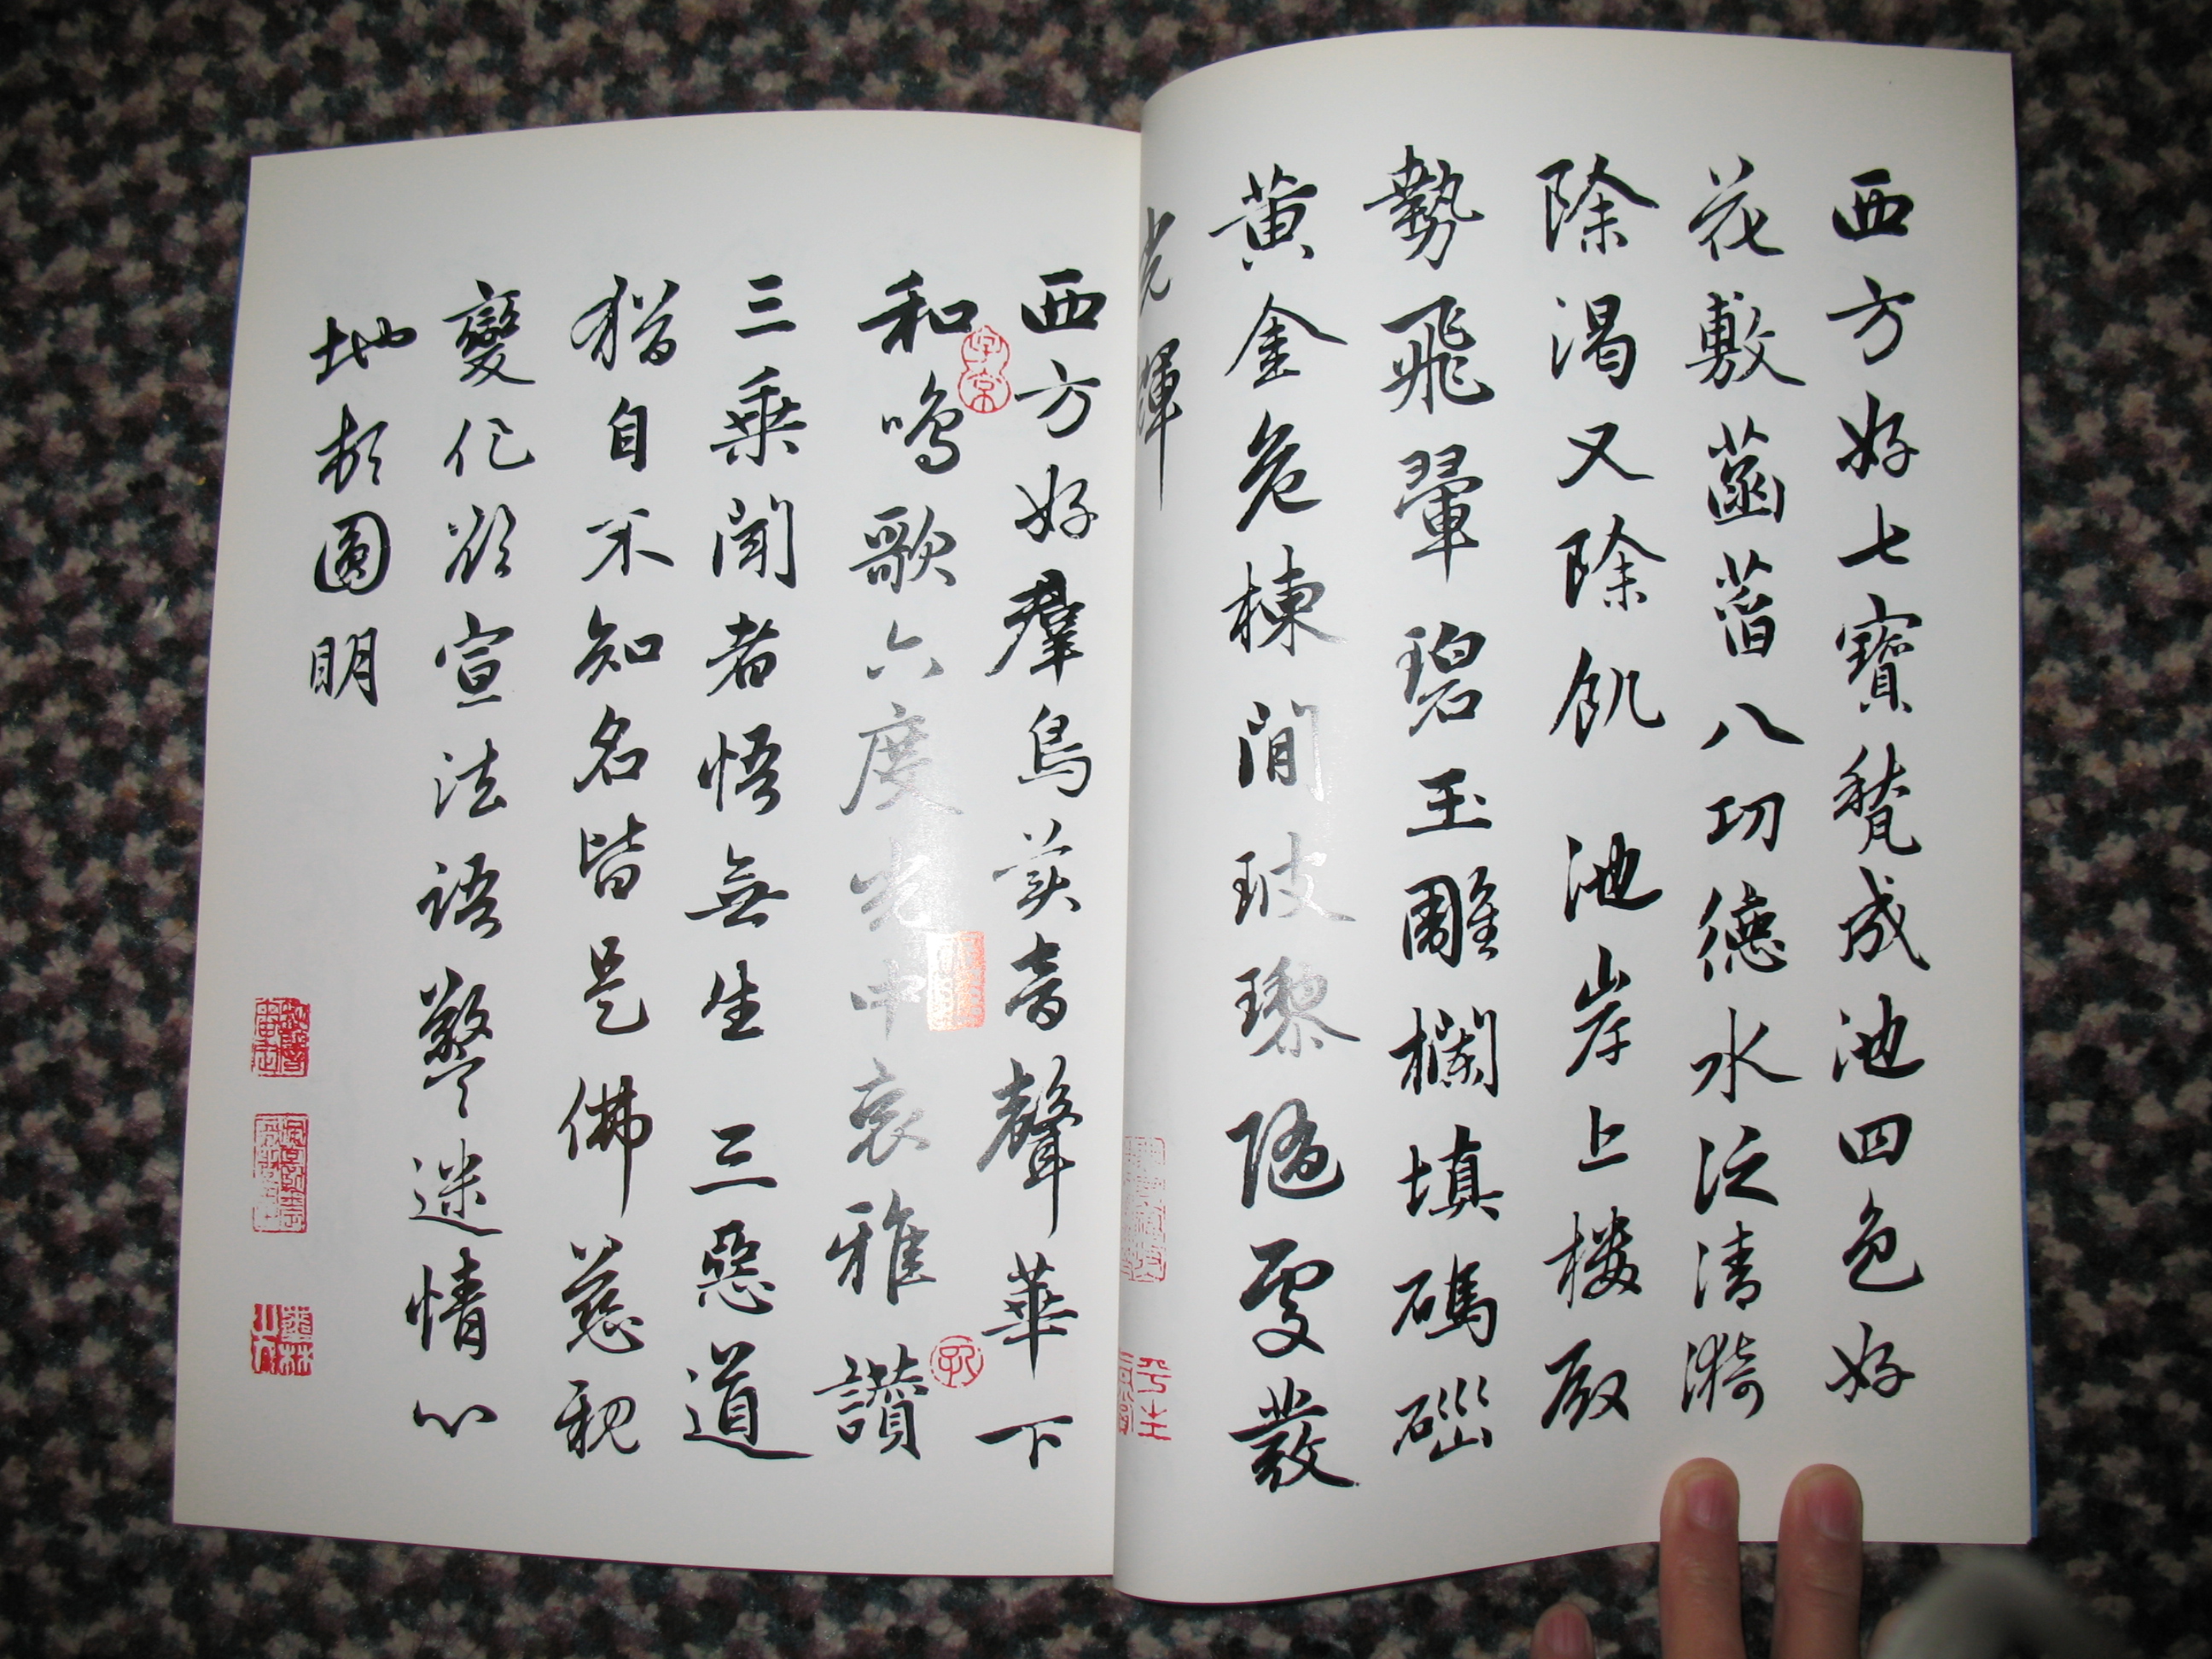 西方好七寶甃成池四色好
花敷菡萏八功德水泛清漪
除渴又除飢　池岸上樓殿
勢飛翬碧玉雕欄填碼碯
黃金危棟間玻瓈隨處發
光輝
西方好羣鳥美音聲華下
和鳴歌六度光中哀雅讚
三乘聞者悟無生　三惡道
猶自不知名皆是佛慈親
變化欲宣法語警迷情心
地頓圓明
子京
平生